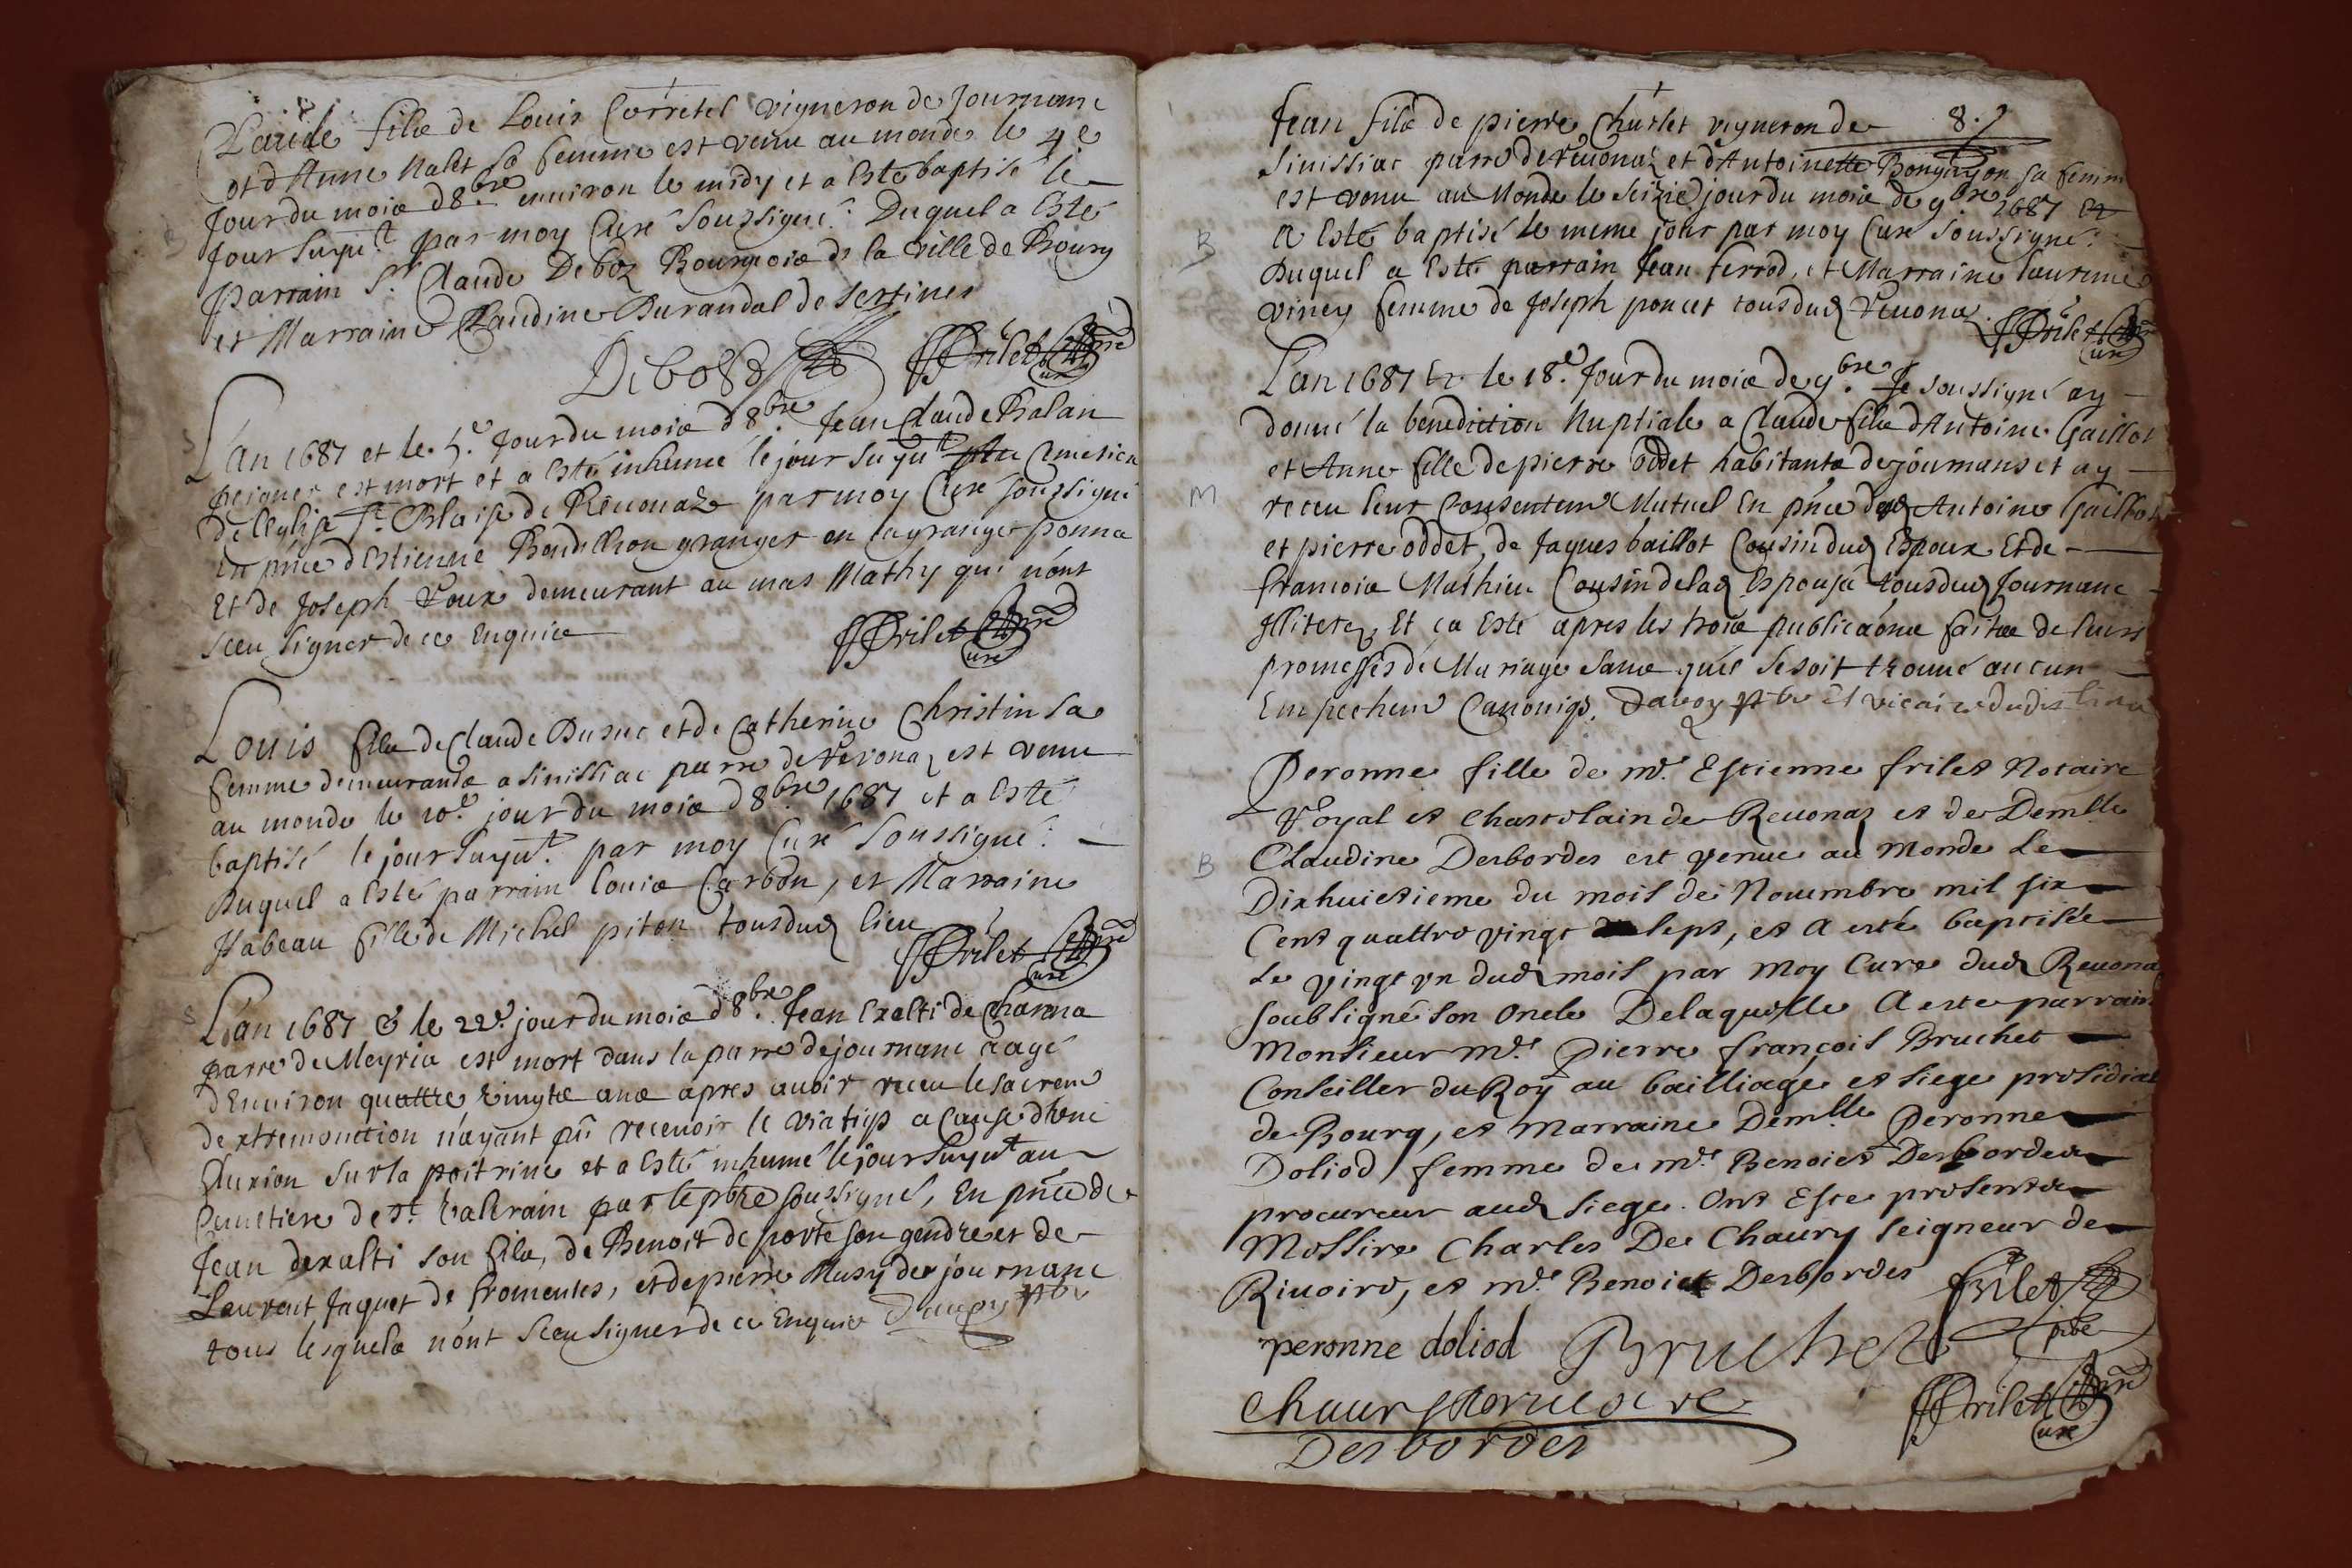 Claude filz de Louis Corretel vigneron de Journanc
et d'Anne Nalet sa femme est venu au monde le 4e
Jour du mois d'8bre environ le midy et a Esté baptisé le
Jour suyvt par moy Curé soussigné. Duquel a Esté
parrain Sr. Claude Deboz Bourgois de la ville de Bourg
et Marraine Claudine Durandal de
Frilet
Curé
L'an 1687 et le 5e Jour du mois d'8bre Jean Claude Balan
peigneur est mort et a Esté inhumé le jour suyvt Au Cimetiere
de l'eglise St. Blaise de Revonaz par moy Curé soussigné
En pñce d'Estienne Boudillon granger en la grange ponna
Et de Joseph Roux demeurant au mas Mathy qui n'ont
sceu signer de ce Enquis
Frilet
Curé
Louis filz de Claude Dusuc et de Catherine Christin sa
femme demeurants a Sinissiac parre de Revonaz est venu
au monde le 10e jour du mois d'8bre 1687 et a Esté
baptisé le jour suyvt. par moy Curé soussigné.
Duquel a Esté parrain Louis Carbon, et Marraine
Isabeau fille de Michel piton tous dud lieu
Frilet
Curé
L'an 1687 & le 22e jour du mois d'8bre Jean Exalti de Charna
parre de Meyria est mort dans la parre de journanc aagé
d'Environ quattre vingts ans apres avoir receu le sacremt
d'extremonction n'ayant pû recevoir le viatiq a cause d'une
fluxion sur la poitrine et a Esté inhumé le jour suyvt au
Cimetiere de St. Valerain par le pbre soussigné, En pñce de
Jean dexalti son filz, de Benoit de porte son gendre et de
Laurent Jaquet de fromentes, et de pierre Musy de journanc
tous lesquels n'ont sceu signer de ce Enquis
8.
Jean filz de pierre Churlet vigneron de
Sinissiac parre de Revonaz et d'Antoinette sa femm
est venu au Monde le seizie jour du mois de 9bre 1687 Et
a Esté baptisé le meme jour par moy Curé soussigné.
B
Duquel a Esté parrain Jean ferrod, et Marraine
viney femme de Joseph poncet tous dud Revonaz.
Frilet
Curé
L'an 1687 Et le 18e. Jour du mois de 9bre. Je soussigné ay
donné la benediction Nuptiale a Claude filz d'Antoine Gaillot
et Anne fille de pierre oddet habitants de journans et ay
M
receu leur Consentemt Mutuel En pñce dud Antoine Gaillot
et pierre oddet, de Jaques baillot Cousin dud Espoux Et de
francois Mathieu Cousin de lad Espouse tous dud Journanc
Illiterez, Et ça Esté apres les trois publicaõns faites de leurs
promesses de Mariage sans quil se soit trouvé aucun
Empechemt Canoniq.
Peronne fille de me. Estienne frilet Notaire
Royal et chastelain de Revonas et de Demlle
B
Claudine Desbordes est venue au Monde le
Dixhuictieme du mois de Nouembre mil six
Cent quattre vingt sept, et A esté baptisée
le vingt vn dud mois par moy Curé dud Revonas
soubsigné son oncle Delaquelle A esté parrain
Monsieur me. Pierre françois Bruchet
Conseiller du Roy au bailliage et siege presidial
de Bourg, et marraine Demlle Peronne
Doliod, femme de me. Benoict Desbordes
procureur aud siege. Ont Esté presents
Messire Charles De Chaury seigneur de
Riuoire, et me. Benoict Desbordes
frilet
pbre
peronne doliod Bruchet
Frilet
Curé
Desbordes